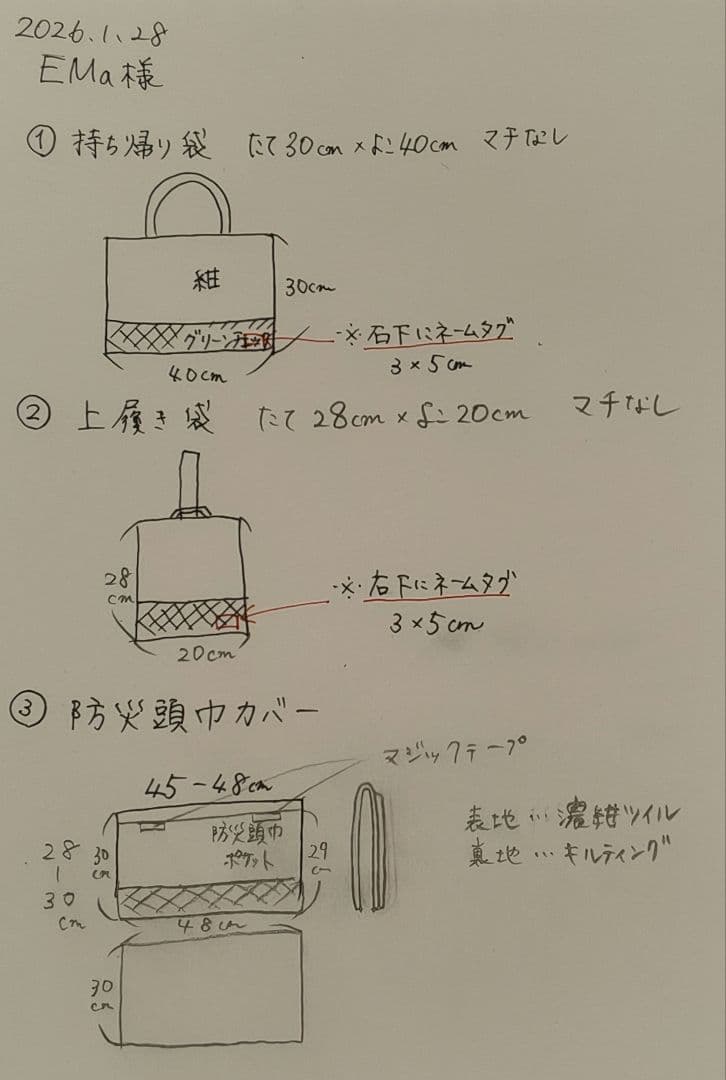 2026.1.28
EMa様
① 持ち帰り袋 たて30cm×よこ40cm マチなし
紺
30cm
グリーンチェック
※右下にネームタグ
3×5cm
40cm
② 上履き袋 たて28cm×よこ20cm マチなし
28cm
※右下にネームタグ
3×5cm
20cm
③ 防災頭巾カバー
マジックテープ
45-48cm
表地…濃紺ツイル
裏地…キルティング
28-30cm
30cm
防災頭巾
ポケット
29cm
48cm
30cm